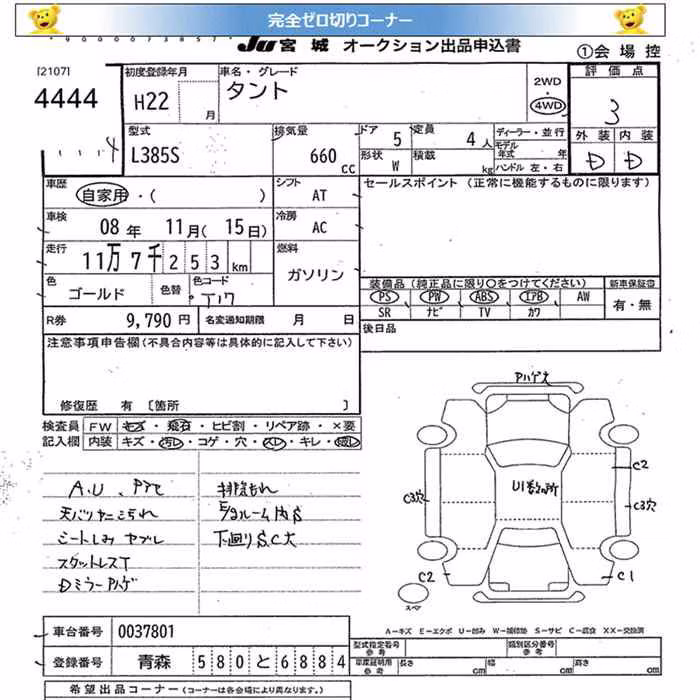 完全ゼロ切りコーナー
JU 宮 城 オークション出品申込書
①会 場 控
[2107]
4444
初度登録年月
H22
月
車名・グレード
タント
2WD
・
4WD
評 価 点
3
外 装
内 装
D
D
型式
L385S
排気量
660
cc
ドア
5
定員
4
人
形状
W
積載
kg
ディーラー・並行
モデル年式
年
ハンドル 左・右
4
車歴
自家用・( )
シフト
AT
セールスポイント (正常に機能するものに限ります)
車検
08 年 11月( 15日)
冷房
AC
走行
11万 7千 2 5 3 km
燃料
ガソリン
色
ゴールド
色替
色コード
T17
装備品 (純正品に限り〇をつけてください)
新車保証書
PS
PW
ABS
エアB
AW
有・無
SR
ナビ
TV
カワ
R券
9,790 円
名変通知期限
月 日
後日品
注意事項申告欄(不具合内容等は具体的に記入して下さい)
修復歴 有 〔箇所 〕
検査員
記入欄
FW
キズ・飛石・ヒビ割・リペア跡・×要
内装
キズ・汚レ・コゲ・穴・スレ・キレ・
A.U、
天バリヤニこられ
シートしみ ヤブレ
スタットレスT
Dミラー Pハゲ
排気もれ
E/gルーム内S
下廻りS.C大
Pハゲ大
U1数ヶ所
C2
C3穴
C3穴
C2
C1
スペア
A－キズ E－エクボ U－凹み W－補修跡 S－サビ C－腐食 XX－交換済
車台番号
0037801
登録番号
青森 580と6884
型式指定番号
参考
類別区分番号
参考
車庫証明用
参考
長さ
cm
幅
cm
高さ
cm
希望出品コーナー (コーナーは各会場により異なります。)